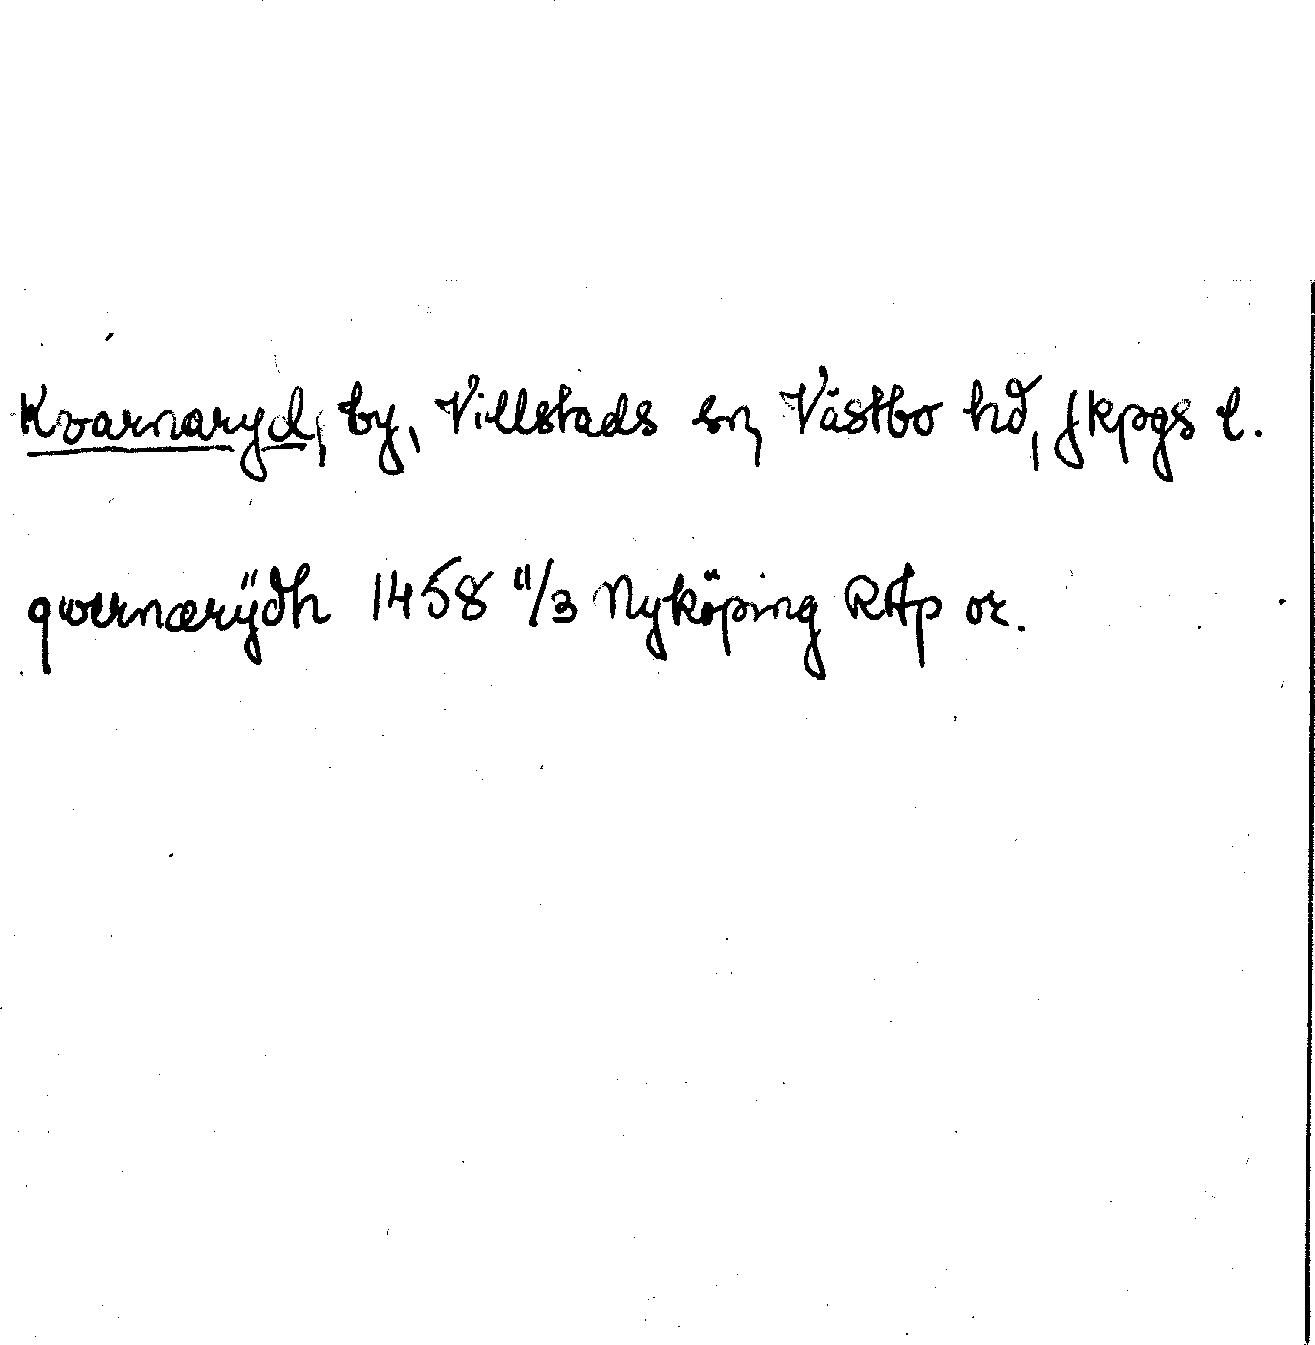 Kvarnaryd, by, Villstads sn, Västbo hd, Jkpgs l.
qwernærÿdh 1458 11/3 Nyköping RAp or.